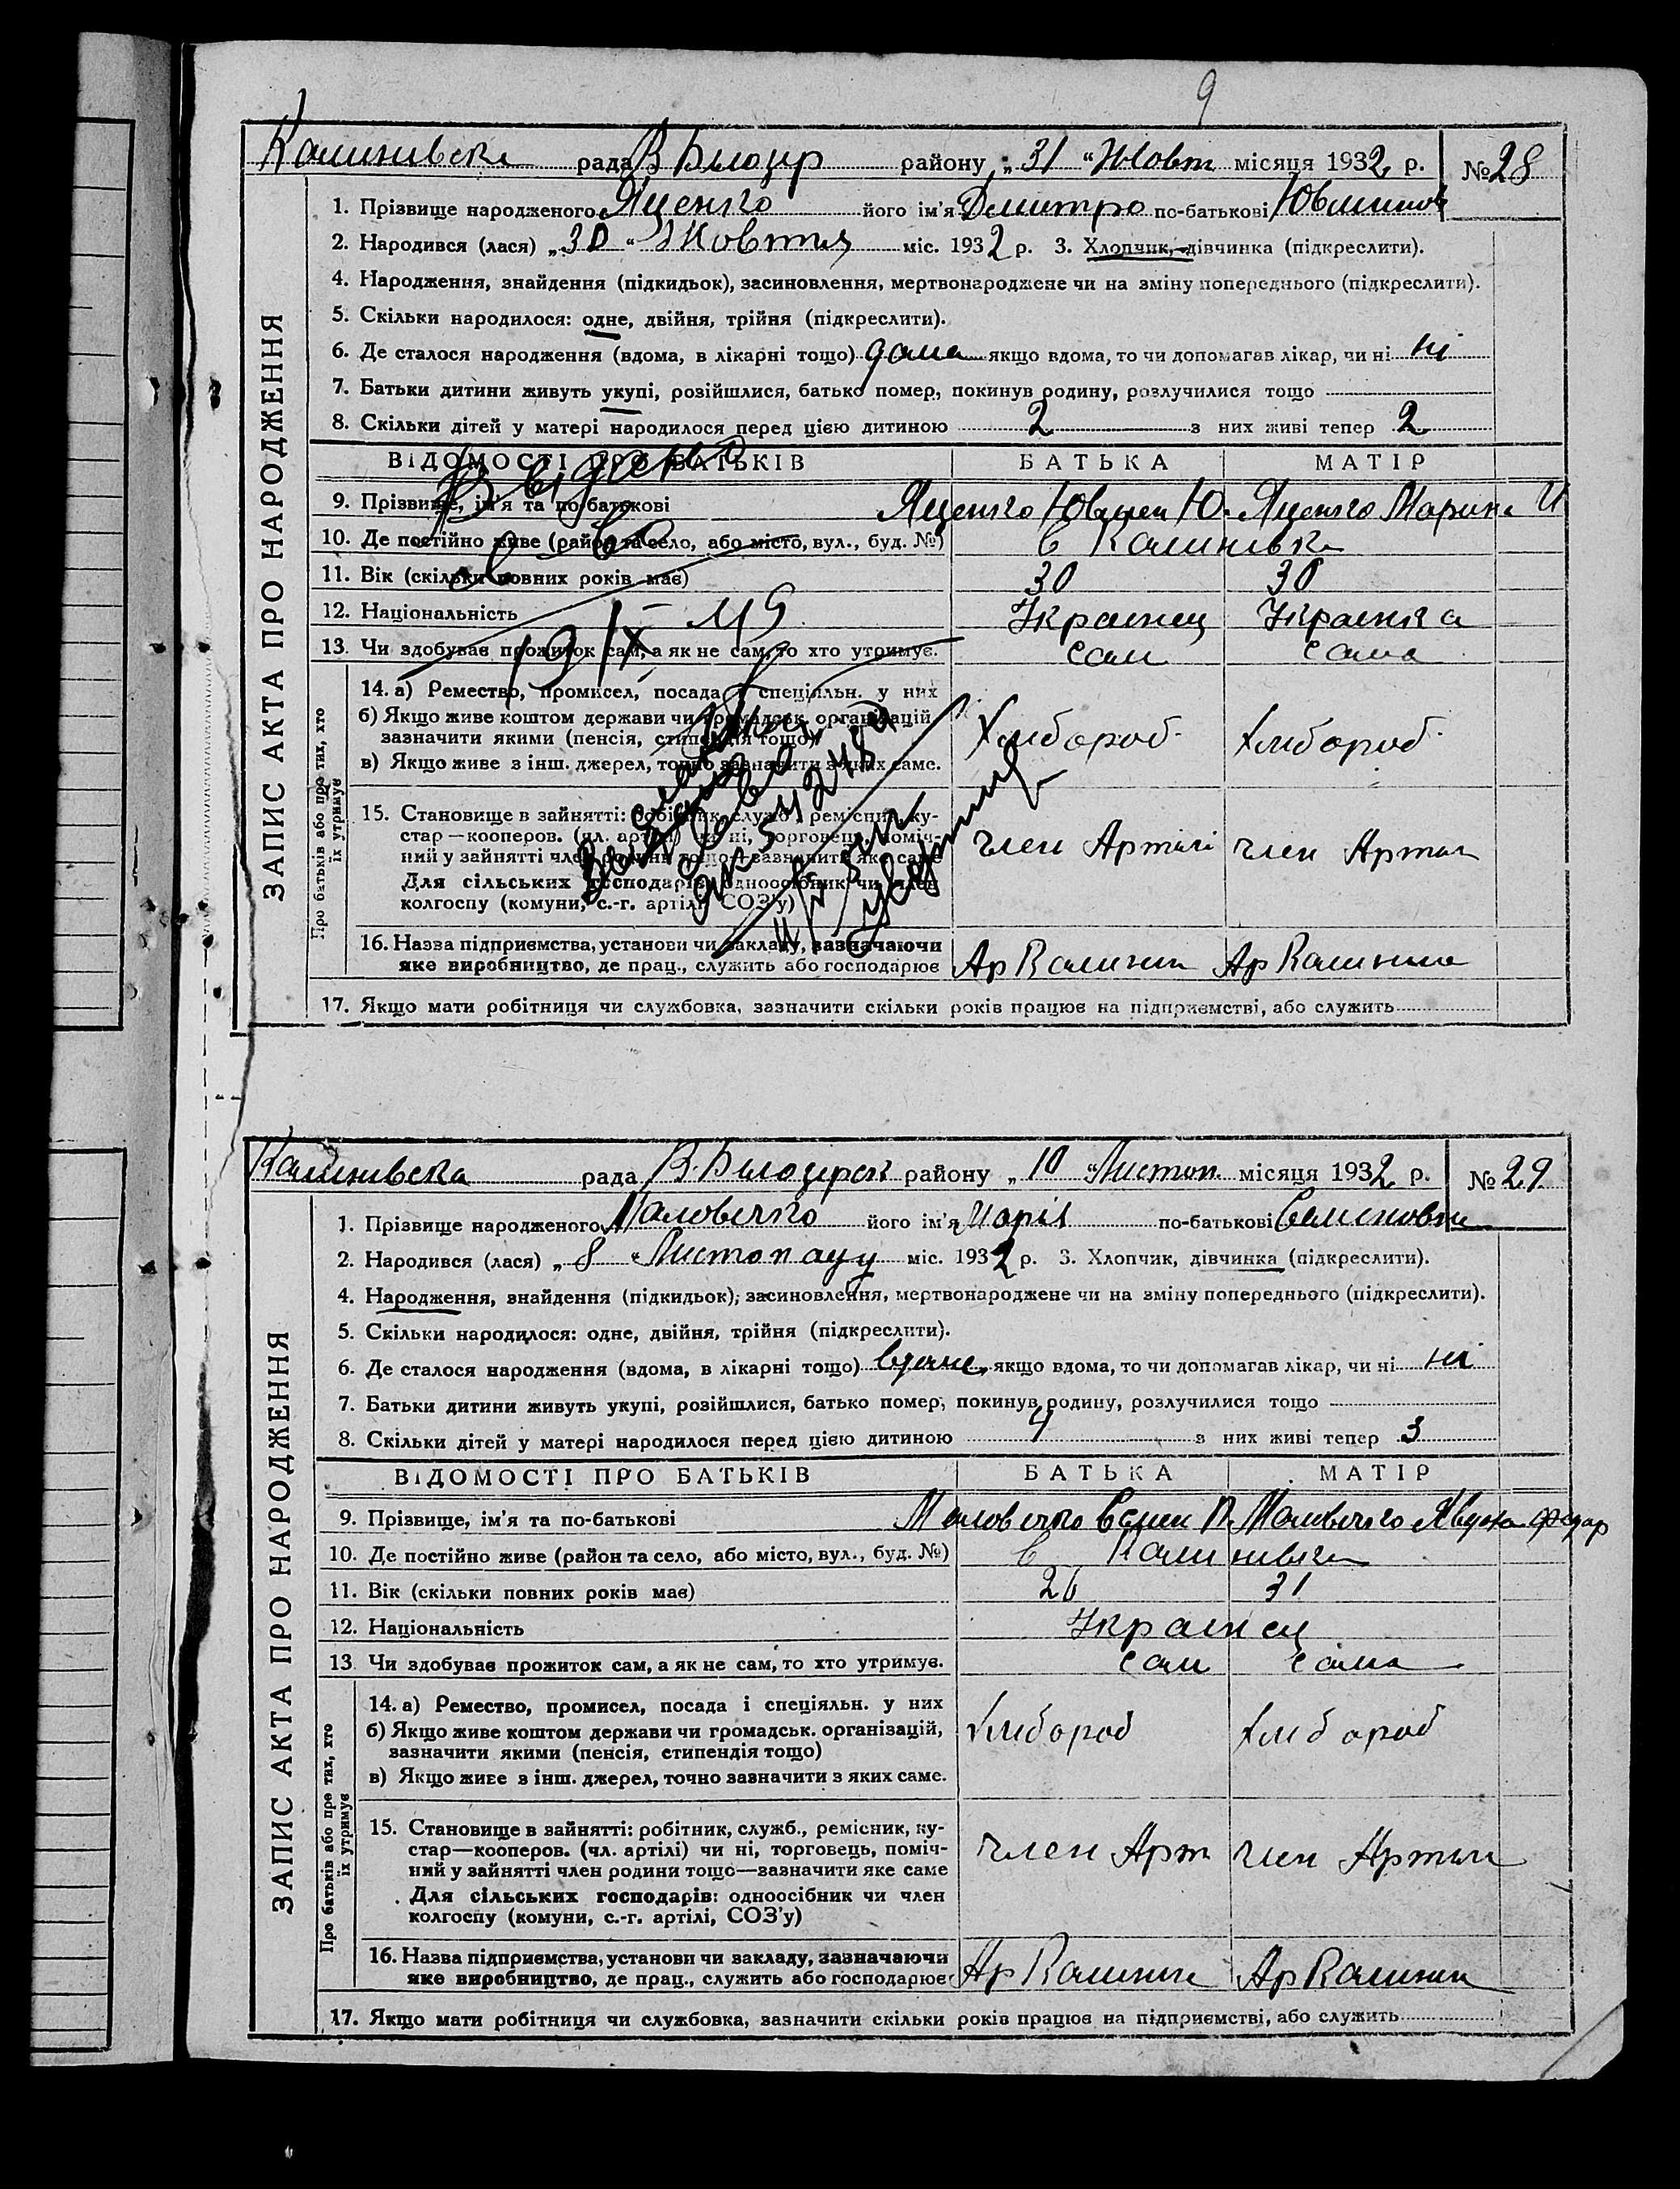 9
Калинивска рада В Билозир району „31“ Жовт місяця 1932 р. № 28
1. Прізвище народженого Яценко його ім'я Дмитро по-батькові
2. Народився (лася) „30“ Жовтня міс. 1932 р. 3. Хлопчик, дівчинка (підкреслити).
4. Народження, знайдення (підкидьок), засиновлення, мертвонароджене чи на зміну попереднього (підкреслити).
5. Скільки народилося: одне, двійня, трійня (підкреслити).
6. Де сталося народження (вдома, в лікарні тощо) дома якщо вдома, то чи допомагав лікар, чи ні ні
7. Батьки дитини живуть укупі, розійшлися, батько помер, покинув родину, розлучилися тощо
8. Скільки дітей у матері народилося перед цією дитиною 2 з них живі тепер 2
ВІДОМОСТІ ПРО БАТЬКІВ БАТЬКА МАТІР
9. Прізвище, ім'я та по-батькові Яценко Ю. Яценко Марина И
10. Де постійно живе (район та село, або місто, вул., буд. №) С Калинивка
11. Вік (скільки повних років має) 30 30
12. Національність Украинец Украинка
13. Чи здобуває прожиток сам, а як не сам, то хто утримує. Сам Сама
19/IX 49
ЗАПИС АКТА ПРО НАРОДЖЕННЯ
Про батьків або про тих, хто їх утримує
14. а) Ремество, промисел, посада і спеціяльн. у них
б) Якщо живе коштом держави чи громадськ. організацій, зазначити якими (пенсія, стипендія тощо)
в) Якщо живе з інш. джерел, точно зазначити з яких саме.
Хлибороб Хлибороб
15. Становище в зайнятті: робітник, служб., ремісник, ку-
стар—кооперов. (чл. артілі) чи ні, торговець, поміч-
ний у зайнятті член родини тощо—зазначити яке саме
Для сільських господарів: одноосібник чи член
колгоспу (комуни, с.-г. артілі, СОЗ'у)
член Артилі член Артил
16. Назва підприємства, установи чи закладу, зазначаючи
яке виробництво, де прац., служить або господарює Ар Калинин Ар Калинина
17. Якщо мати робітниця чи службовка, зазначити скільки років працює на підприємстві, або служить
Калинивска рада В. Билозирск району „10“ Листоп місяця 1932 р. № 29
1. Прізвище народженого Маловичко його ім'я Марія по-батькові Семеновна
2. Народився (лася) „8“ Листопаду міс. 1932 р. 3. Хлопчик, дівчинка (підкреслити).
4. Народження, знайдення (підкидьок), засиновлення, мертвонароджене чи на зміну попереднього (підкреслити).
5. Скільки народилося: одне, двійня, трійня (підкреслити).
6. Де сталося народження (вдома, в лікарні тощо) вдома якщо вдома, то чи допомагав лікар, чи ні ні
7. Батьки дитини живуть укупі, розійшлися, батько помер, покинув родину, розлучилися тощо
8. Скільки дітей у матері народилося перед цією дитиною 4 з них живі тепер 3
ВІДОМОСТІ ПРО БАТЬКІВ БАТЬКА МАТІР
9. Прізвище, ім'я та по-батькові Маловичко Семен П. Маловичко Явдока Федор
10. Де постійно живе (район та село, або місто, вул., буд. №) С Калинивка
11. Вік (скільки повних років має) 26 31
12. Національність Украинец
13. Чи здобуває прожиток сам, а як не сам, то хто утримує. Сам Сама
ЗАПИС АКТА ПРО НАРОДЖЕННЯ
Про батьків або про тих, хто їх утримує
14. а) Ремество, промисел, посада і спеціяльн. у них
б) Якщо живе коштом держави чи громадськ. організацій,
зазначити якими (пенсія, стипендія тощо)
в) Якщо живе з інш. джерел, точно зазначити з яких саме.
Хлибороб Хлибороб
15. Становище в зайнятті: робітник, служб., ремісник, ку-
стар—кооперов. (чл. артілі) чи ні, торговець, поміч-
ний у зайнятті член родини тощо—зазначити яке саме
Для сільських господарів: одноосібник чи член
колгоспу (комуни, с.-г. артілі, СОЗ'у)
член Арт член Артили
16. Назва підприємства, установи чи закладу, зазначаючи
яке виробництво, де прац., служить або господарює Ар Калинин Ар Калинин
17. Якщо мати робітниця чи службовка, зазначити скільки років працює на підприємстві, або служить